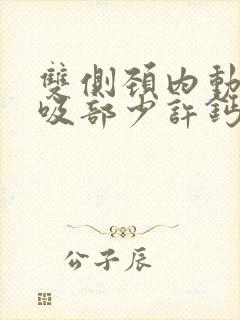 雙側頸內動
吸部少許鈣
公子辰